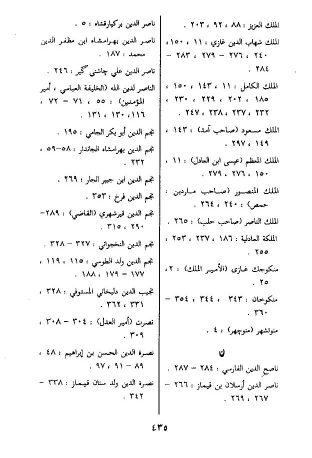 الملك العزيز : ٨٨ ، ٩٢ ، ٢٠٣ .
الملك شهاب الدين غازي : ١١ ، ١٥٠ ،
٢٧٦ ، ٢٧٨ – ٢٧٩ – ٢٨٣ –
٢٨٤
الملك الكامل : ١١ ، ١٤٣ ، ١٥٠ ،
١٨٥ ، ٢٠٢ ، ٢٢٩ ، ٢٣٠ ،
٢٣٢ ، ٢٣٧ ، ٢٣٨ ، ٢٤٧ .
الملك مسعود (صاحب آمد) : ١٤٣ ،
١٤٩ ، ٢٩٧ .
الملك المعظم (عيسى ابن العادل) : ١١ ،
١٥٠ ، ٢٧٦ ، ٢٧٩ .
الملك المنصور (صاحب ماردين :
حمص) : ٢٤٠ ، ٢٦٤ .
الملك الناصر (صاحب حلب) : ٢٦٥ .
الملكة العادلية : ١٨٦ ، ٢٣٧ ، ٢٥٣ ،
٢٥٥ .
منكوجك غازى (الأمير الملك) : ٢ ،
١٥٦ .
منكوخان : ٣٤٣ ، ٣٤٤ – ٣٥٤ ،
٣٦٠ .
منوتشهر (متوچهر) : ٤ .
ن
ناصح الدين الفارسي : ٢٨٤ – ٢٨٧ .
ناصر الدين أرسلان بن قيماز : ٢٦٦ –
٢٦٧ ، ٢٦٩ .
ناصر الدين بركيارقشاه : ٥ .
ناصر الدين بهرامشاه ابن مظفر الدين
محمد : ١٨٧ .
ناصر الدين علي چاشني گير : ٢٤٦ .
الناصر لدين الله (الخليفة العباسي ، أمير
المؤمنين) : ٥٥ ، ٧١ – ٧٢ ،
١١٦ ، ١٣٠ ، ١٣١ .
نجم الدين أبو بكر الجامي : ١٩٥ .
نجم الدين بهرامشاه الجاندار : ٥٨–٥٩ ،
٢٣٢ .
نجم الدين ابن جبير الجار : ٢٦٩ .
نجم الدين فرخ : ٣٥٣ .
نجم الدين قيرشهري (القاضي) : ٢٨٩–
٢٩٠ ، ٣١٥ .
نجم الدين النخجواني : ٣٢٧ – ٣٢٨ .
نجم الدين ولد الطوسي : ١١٥ ، ١١٩ ،
١٧٧ – ١٧٩ ، ١٨٨ .
نجيب الدين دليخاني المستوفي : ٣٢٨ ،
٣٣١ ، ٣٦٢ .
نصرت (أمير العدل) : ٣٠٤ – ٣٠٨ ،
٣٠٩ .
نصرة الدين الحسن بن إبراهيم : ٤٨ ،
٨٩ – ٩١ ، ٩٧ .
نصرة الدين ولد سنان قيماز : ٣٣٨ –
٣٤٢ .
٤٣٥